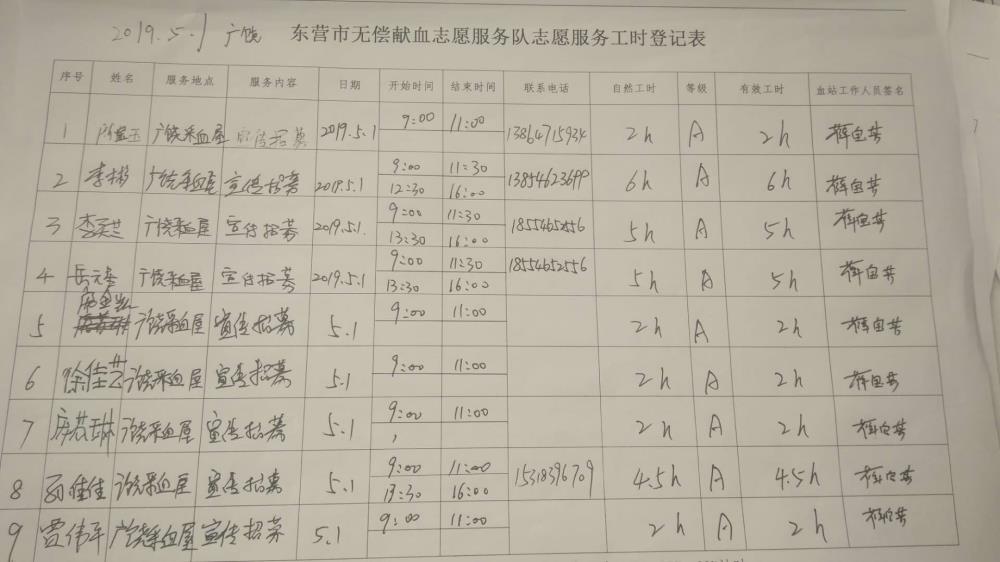 2019.5.1 广饶 东营市无偿献血志愿服务队志愿服务工时登记表
序号 姓名 服务地点 服务内容 日期 开始时间 结束时间 联系电话 自然工时 等级 有效工时 血站工作人员签名
1 广饶采血屋 宣传招募 2019.5.1 9:00 11:00 13864715934 2h A 2h
2 李彬 广饶采血屋 宣传招募 2019.5.1 9:00 11:30 6h A 6h
12:30 16:00
3 广饶采血屋 宣传招募 2019.5.1. 9:00 11:30 5h A 5h
13:30 16:00
4 岳元奎 广饶采血屋 宣传招募 2019.5.1 9:00 11:30 18554652556 5h A 5h
13:30 16:00
5 广饶采血屋 宣传招募 5.1 9:00 11:00 2h A 2h
6 徐佳芸 广饶采血屋 宣传招募 5.1 9:00 11:00 2h A 2h
7 房芯琳 广饶采血屋 宣传招募 5.1 9:00 11:00 2h A 2h
8 孙佳佳 广饶采血屋 宣传招募 5.1 9:00 11:00 4.5h A 4.5h
13:30 16:00
9 贾伟平 广饶采血屋 宣传招募 5.1 9:00 11:00 2h A 2h